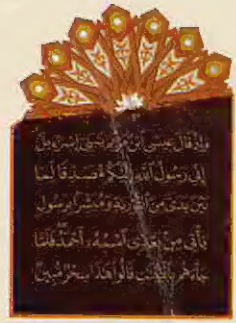 وَإِذْ قَالَ عِيسَى ابْنُ مَرْيَمَ يَٰبَنِىٓ إِسْرَٰٓءِيلَ
إِنِّى رَسُولُ ٱللَّهِ إِلَيْكُم مُّصَدِّقًا لِّمَا
بَيْنَ يَدَىَّ مِنَ ٱلتَّوْرَىٰةِ وَمُبَشِّرًۢا بِرَسُولٍ
يَأْتِى مِنۢ بَعْدِى ٱسْمُهُۥٓ أَحْمَدُ ۖ فَلَمَّا
جَآءَهُم بِٱلْبَيِّنَٰتِ قَالُوا۟ هَٰذَا سِحْرٌ مُّبِينٌ